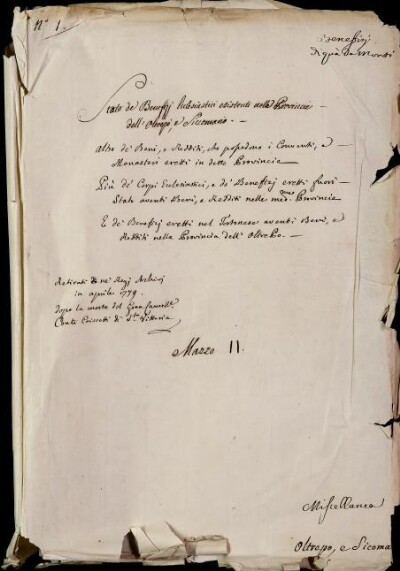 N.° 1.
Benefizj
di quà da Monti
Stato de' Benefizj Eclesiastici esistenti nelle Provincie
dell'Oltrepò, e Siccomario. -
Altro de' Beni, e Redditi, che possedono i Conventi, e
Monasteri eretti in dette Provincie
Più de' Corpi Eclesiastici, e de' Benefizj eretti fuori
Stato aventi Beni, e Redditi nelle med.me Provincie
E de' Benefizj eretti nel Tortonese aventi Beni, e
Redditi nella Provincia dell'Oltrepò. -
Regj Archivj
in aprile 1779.
dopo la morte del Gran
Conte di S.ta Vittoria
Mazzo 11.
Miscellanea
Oltrepo, e Sicoma